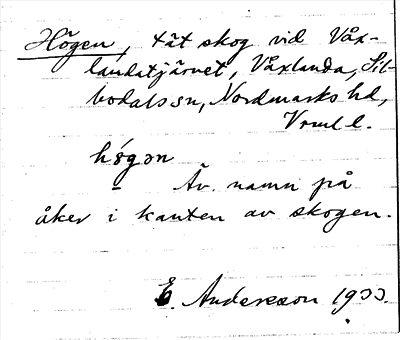 Högen, tät skog vid Våx-
landatjärnet, Våxlanda, Sil-
bodals sn, Nordmarks hd,
Vrml l.
hö́gɔn
Äv. namn på
åker i kanten av skogen.
E. Andersson 1933.